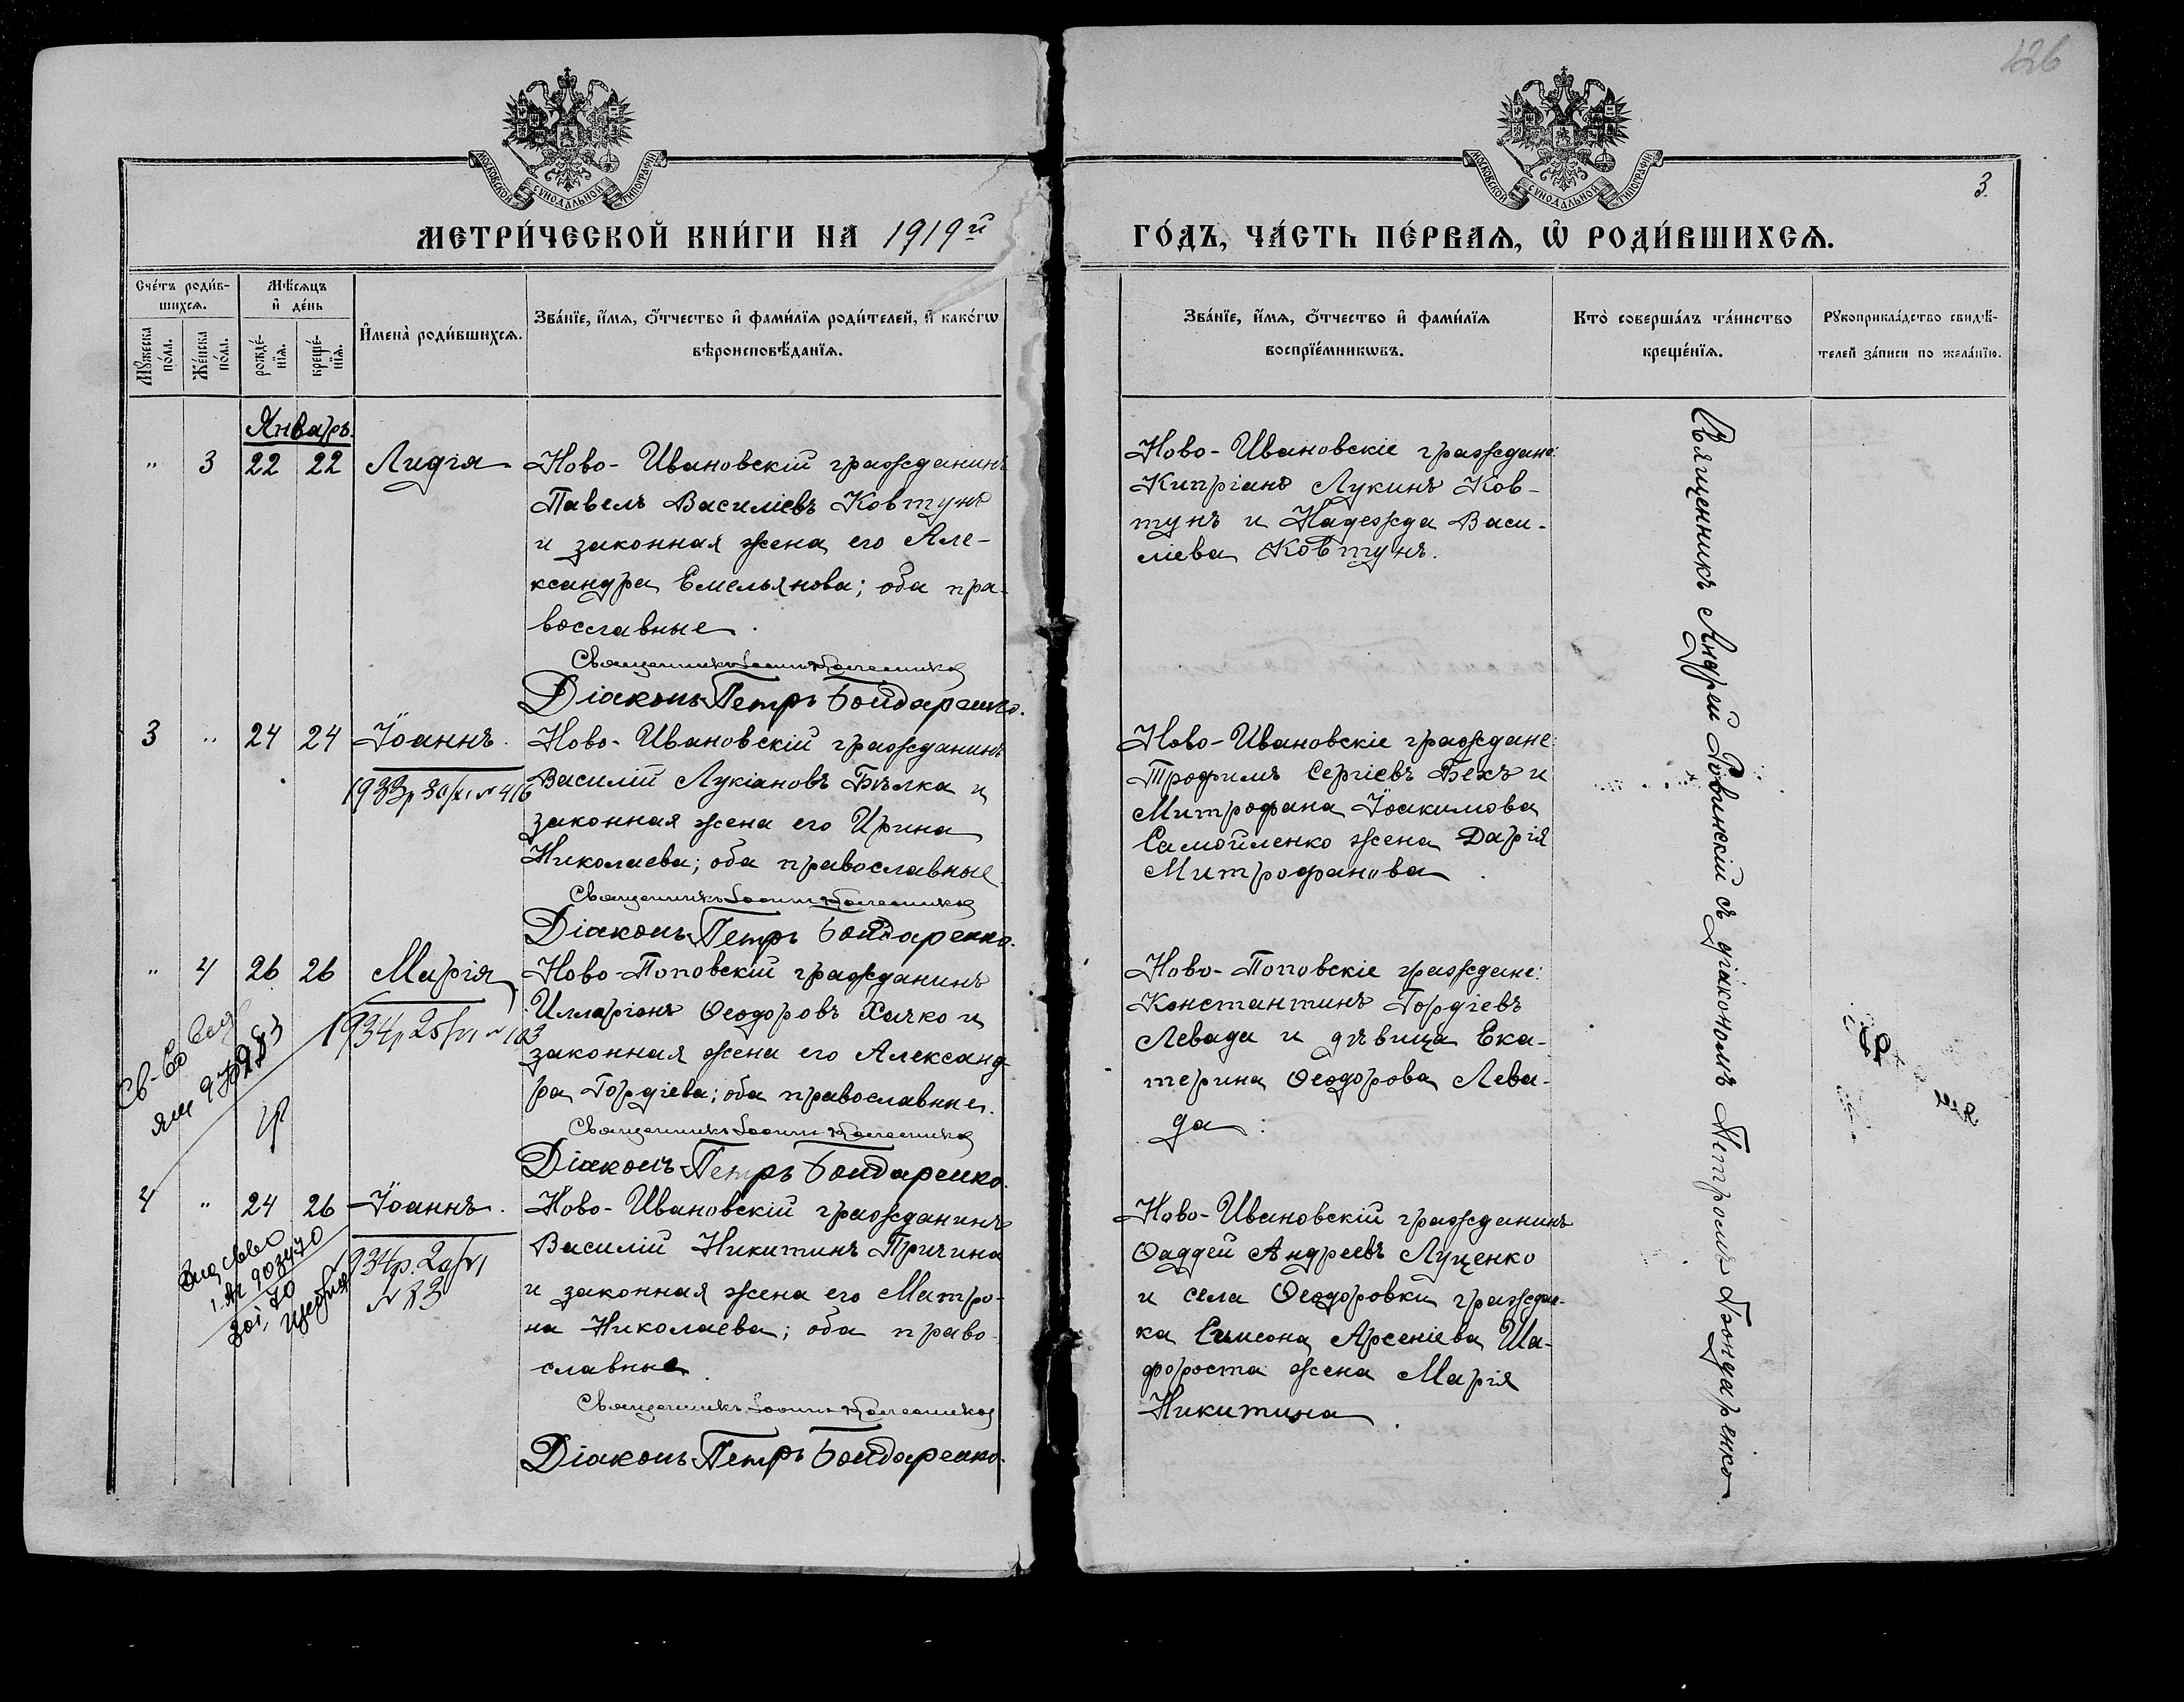 126
МОСКОВСКОЙ СѴНОДАЛЬНОЙ ТИПОГРАФІИ
МОСКОВСКОЙ СѴНОДАЛЬНОЙ ТИПОГРАФІИ
3.
МЕТРИ́ЧЕСКОЙ КНИ́ГИ НА 1919й
ГО́ДЪ, ЧА́СТЬ ПЕ́РВАѦ, Ѡ҆ РОДИ́ВШИХСѦ.
Сче́тъ роди́в-
шихсѧ.
Мꙋ́жеска по́ла.
Же́нска по́ла.
Мѣ́сѧцъ
и҆ де́нь
рожде́-
нїѧ.
креще́-
нїѧ.
И҆мена̀ роди́вшихсѧ.
Зва́нїе, и҆́мѧ, ѻ҆́тчество и҆ фами́лїѧ роди́телей, и҆ како́гѡ
вѣроисповѣ́данїѧ.
Зва́нїе, и҆́мѧ, ѻ҆́тчество и҆ фами́лїѧ
воспрїе́мникѡвъ.
Кто̀ соверша́лъ та́инство
креще́нїѧ.
Рꙋкоприкла́дство свидѣ́-
телей за́писи по жела́нїю.
Январь.
" 3 22 22 Лидія
Ново-Ивановскій гражданинъ
Павелъ Василіевъ Ковтунъ
и законная жена его Але-
ксандра Емельянова; оба пра-
вославные.
Священникъ Іоаннъ
Діаконъ Петръ Бондаренко.
Ново-Ивановскіе граждане:
Кипріанъ Лукинъ Ков-
тунъ и Надежда Васи-
ліева Ковтунъ.
3 " 24 24 Іоаннъ.
1933р 30/XI № 416
Ново-Ивановскій гражданинъ
Василій Лукіановъ Бѣлка и
законная жена его Ирина
Николаева; оба православные.
Священникъ Іоаннъ
Діаконъ Петръ Бондаренко.
Ново-Ивановскіе граждане:
Трофимъ Сергіевъ Бехъ и
Митрофана Іоакимова
Самойленко жена Дарія
Митрофанова.
" 4 26 26 Марія
1934р 25/VI № 103
Ново-Поповскій гражданинъ
Илларіонъ Ѳеодоровъ Хачко и
законная жена его Александ-
ра Гордіева; оба православные.
Священникъ Іоаннъ
Діаконъ Петръ Бондаренко.
Ново-Поповскіе граждане:
Константинъ Гордіевъ
Левада и дѣвица Ека-
терина Ѳеодорова Лева-
да.
4 " 24 26 Іоаннъ.
903470
1934р. 20/VI
№ 83
Ново-Ивановскій гражданинъ
Василій Никитинъ Причина
и законная жена его Матро-
на Николаева; оба право-
славные.
Священникъ Іоаннъ
Діаконъ Петръ Бондаренко.
Ново-Ивановскій гражданинъ
Ѳаддей Андреевъ Луценко
и села Ѳеодоровки граждан-
ка Симеона Арсеніева Ша-
фороста жена Марія
Никитина.
Священникъ Андрей Ровинскій съ діакономъ Петромъ Бондаренко.